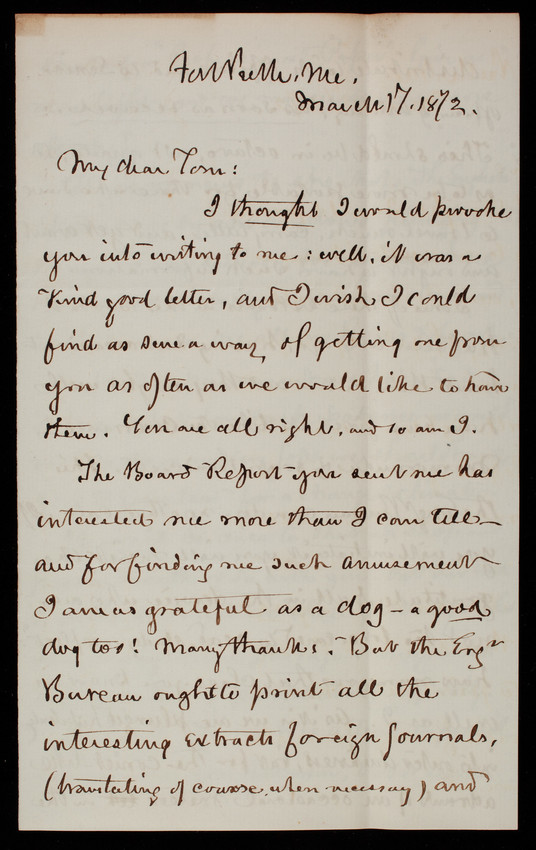 Fort Preble, Me.
March 17. 1872.
My dear Tom:
I thought I would provoke
you into writing to me: well, it was a
kind good letter, and I wish I could
find as sure a way, of getting one from
you as often as we would like to have
them. You are all right, and so am I.
The Board Report you sent me has
interested me more than I can tell—
and for finding me such amusement
I am as grateful as a dog – a good
dog too! Many thanks. But the Engr
Bureau ought to print all the
interesting extracts foreign Journals,
(translating of course, when necessary) and